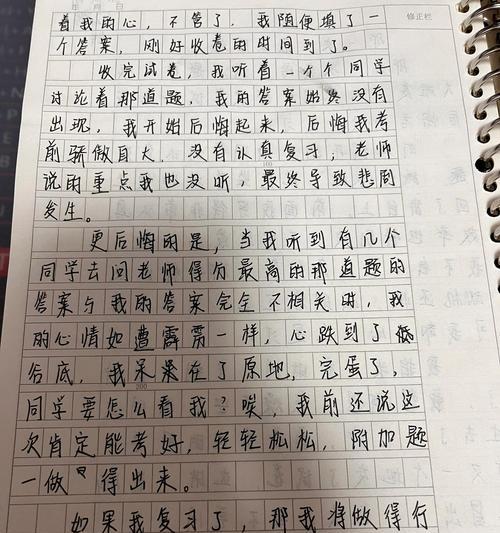 年 月 日
修正栏
着我的心，不管了，我随便填了一
个答案，刚好收卷的时间到了。
收完试卷，我听着一个个同学
讨论着那道题，我的答案始终没有
出现，我开始后悔起来，后悔我考
前骄傲自大，没有认真复习，老师
说的重点我也没听，最终导致悲剧
发生。
更后悔的是，当我听到有几个
同学去问老师得分最高的那道题的
答案与我的答案完全不相关时，我
的心情如遭霹雳一样，心跌到了低
谷底，我呆呆在了原地，完蛋了，
200
同学要怎么看我？唉，我前还说这
次肯定能考好，轻轻松松，附加题
一做 得出来。
如果我复习了，那我将做得行